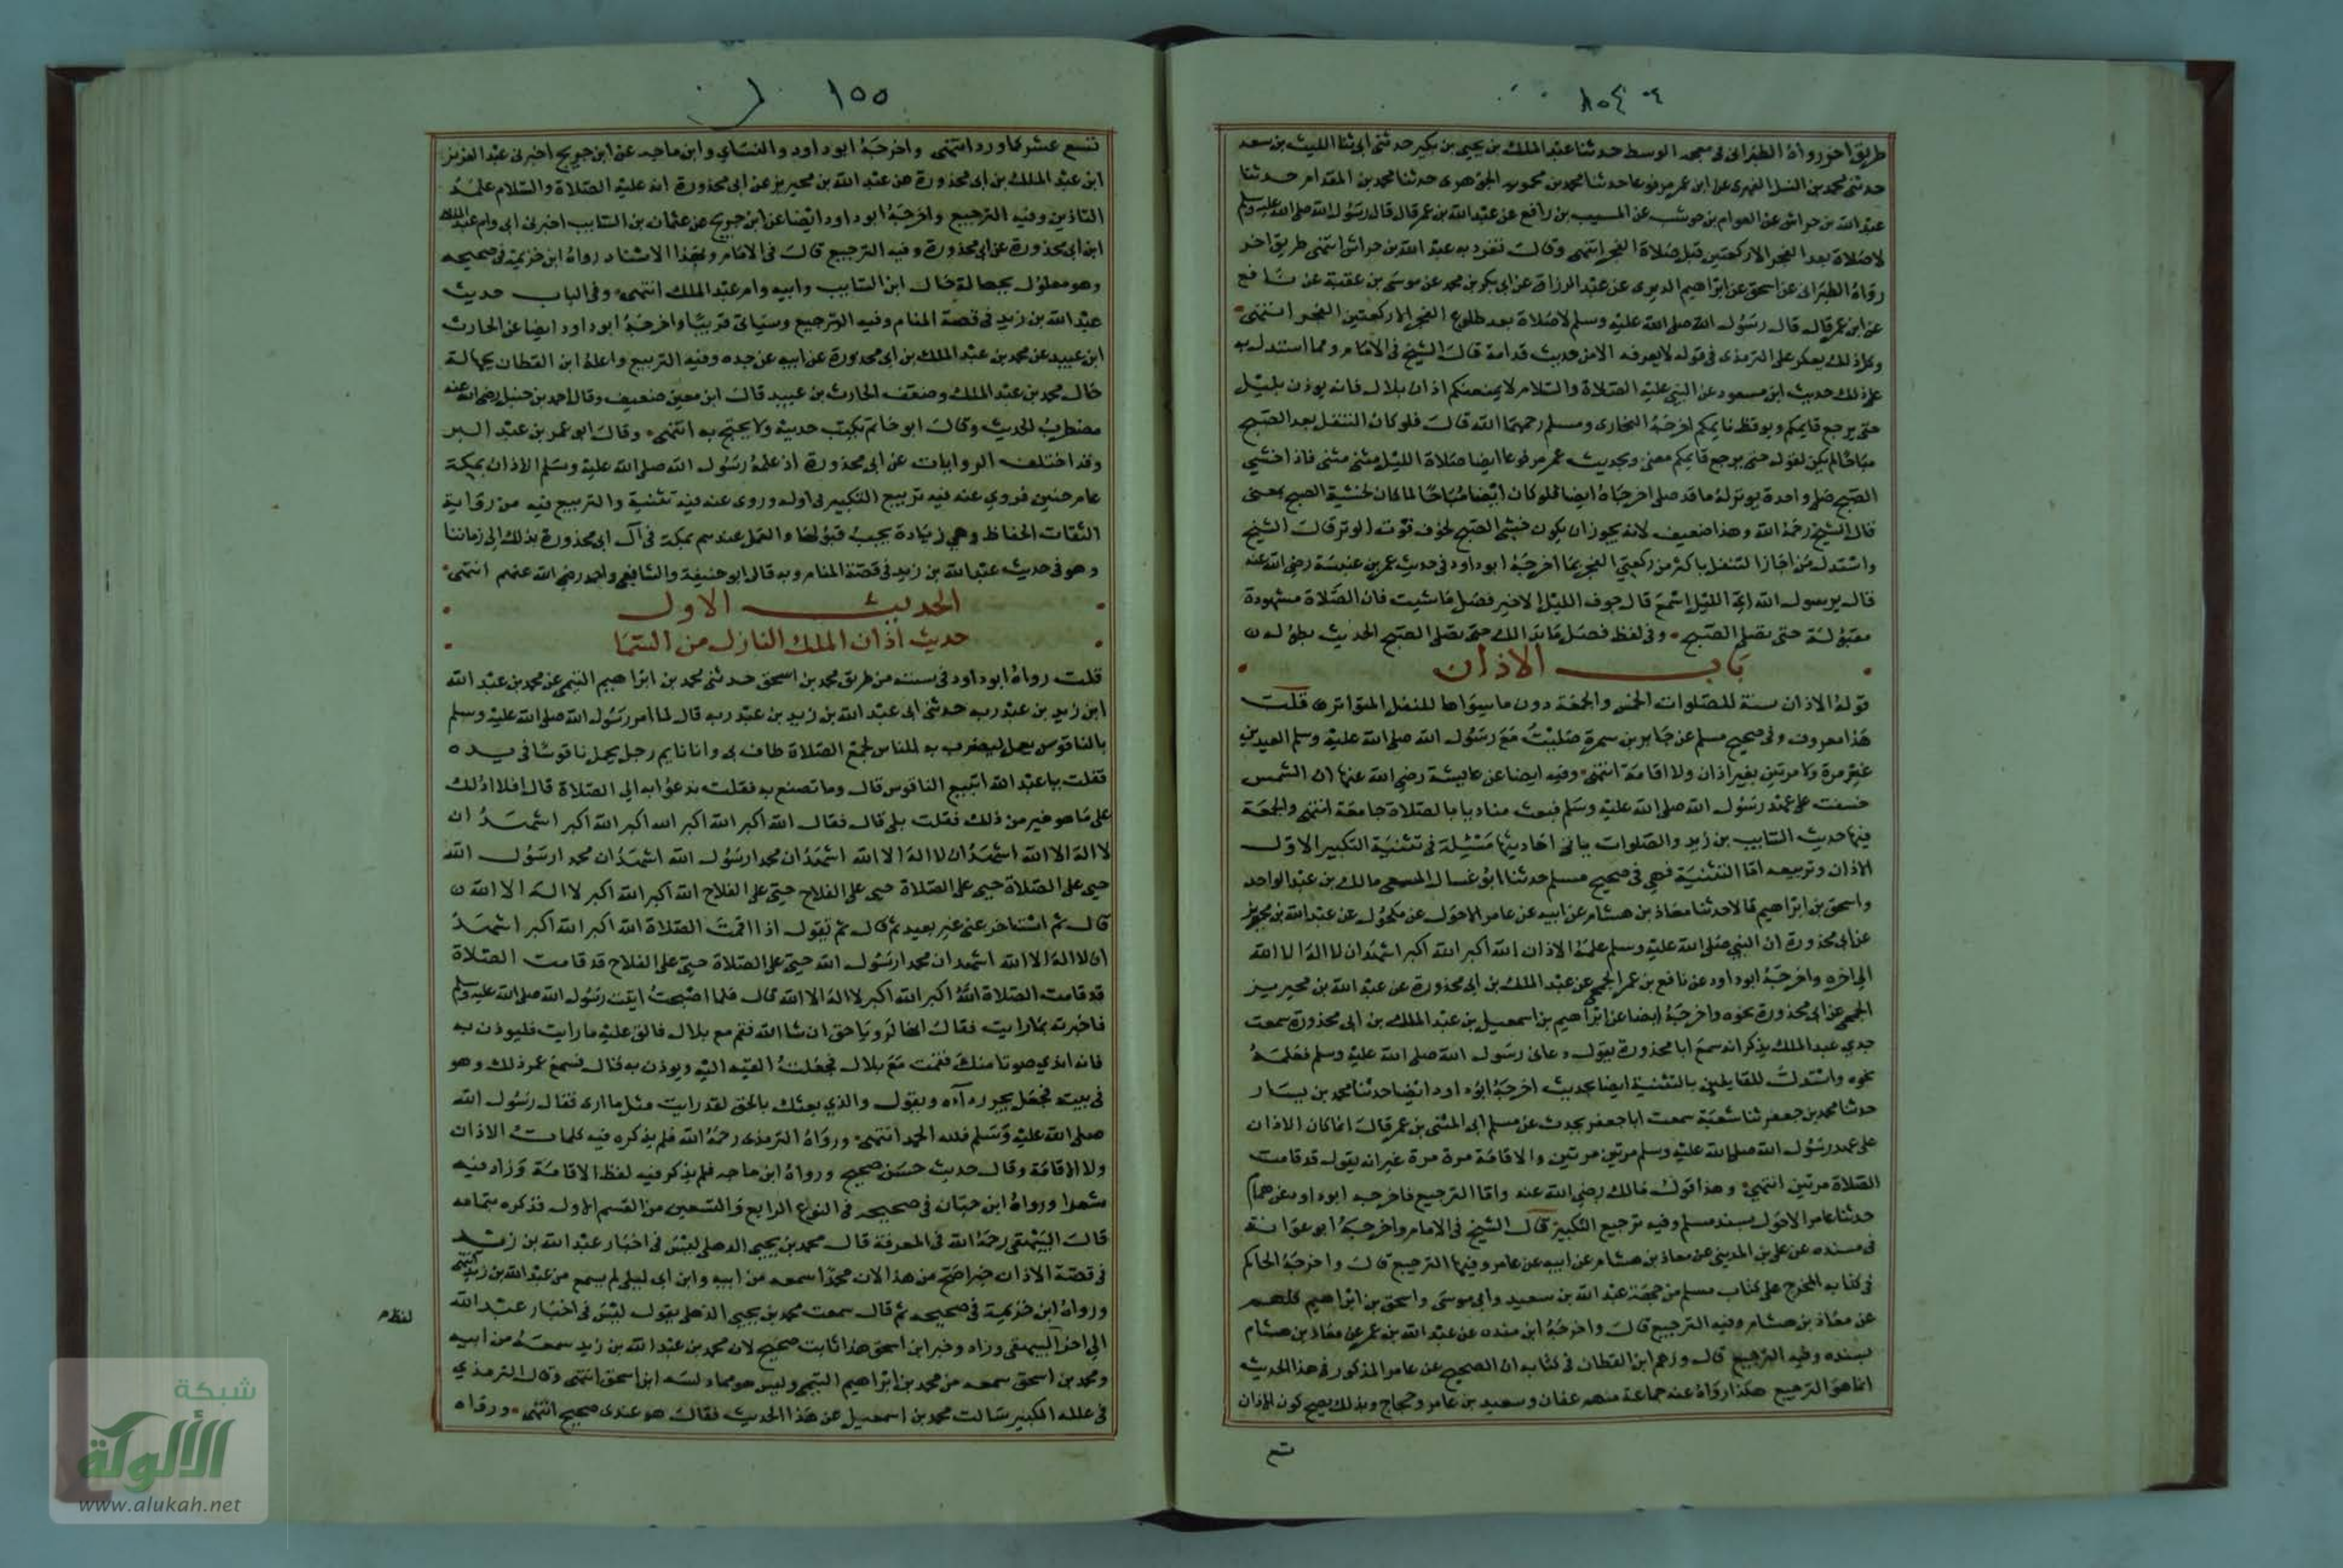 ١٥٤
طريق اخر رواه الطبراني في معجمه الوسط حدثنا عبد الملك بن يحيى بن بكير حدثني ابي ثنا الليث بن سعد
حدثني محمد بن النيل الفهري عن ابن عمر مرفوعا حدثنا محمد بن محمويه الجوهري حدثنا محمد بن المقدام حدثنا
عبد الله بن حراش عن العوام بن حوشب عن المسيب بن رافع عن عبد الله بن عمر قال قال رسول الله صلى الله عليه وسلم
لا صلاة بعد الفجر الا ركعتين قبل صلاة الفجر انتهى وقال تفرد به عبد الله بن حراش انتهى طريق اخر
رواه الطبراني عن اسحق عن ابراهيم الدبري عن عبد الرزاق عن ابي بكر بن محمد عن موسى بن عقبة عن نافع
عن ابن عمر قال قال رسول الله صلى الله عليه وسلم لا صلاة بعد طلوع الفجر الا ركعتين الفجر انتهى
وكل ذلك يعكر على الترمذي في قوله لا يعرفه الا من حديث قدامة قال الشيخ في الامام ومما استدل به
على ذلك حديث ابن مسعود عن النبي عليه الصلاة والسلام لا يمنعنكم اذان بلال فانه يوذن بليل
حتى يرجع قايمكم ويوقظ نايمكم اخرجه البخاري ومسلم رحمهما الله قال فلو كان التنفل بعد الصبح
مباحا لم يكن لقوله حتى يرجع قايمكم معنى وبحديث عمر مرفوعا ايضا صلاة الليل مثنى مثنى فاذا خشي
الصبح صلى واحدة يوتر له ما قد صلى اخرجاه ايضا فلو كان ايضا مباحا لما كان لخشية الصبح معنى
قال الشيخ رحمه الله وهذا ضعيف لانه يجوز ان يكون خشي الصبح لخوف فوت الوتر قال الشيخ
واستدل من اجاز التنفل باكثر من ركعتي الفجر بما اخرجه ابو داود في حديث عمر بن عنبسة رضي الله عنه
قال يرسول الله اي الليل اسمع قال جوف الليل الاخير فصل ما شيت فان الصلاة مشهودة
مقبولة حتى تصلي الصبح وفي لفظ فصل ما بدا لك حتى تصلي الصبح الحديث بطوله
باب الاذان
قوله الاذان سنة للصلوات الخمس والجمعة دون ما سواها للنقل المتواتر قلت
هذا معروف وفي صحيح مسلم عن جابر بن سمرة صليت مع رسول الله صلى الله عليه وسلم العيدين
غير مرة ولا مرتين بغير اذان ولا اقامة انتهى وفيه ايضا عن عايشة رضي الله عنها ان الشمس
خسفت على عهد رسول الله صلى الله عليه وسلم فبعث مناديا بالصلاة جامعة انتهى والجمعة
فيها حديث السايب بن زيد والصلوات ياتي احاديثها مستثيلة في تثنية التكبير الاول
الاذان وتربيعه اما التثنية فهي في صحيح مسلم حدثنا ابو غسان المسمعي مالك بن عبد الواحد
واسحق بن ابراهيم قالا حدثنا معاذ بن هشام عن ابيه عن عامر الاحول عن مكحول عن عبد الله بن محيريز
عن ابي محذورة ان النبي صلى الله عليه وسلم علمه الاذان الله اكبر الله اكبر اشهد ان لا اله الا الله
الى اخره واخرجه ابو داود عن نافع بن عمر الجمحي عن عبد الملك بن ابي محذورة عن عبد الله بن محيريز
الجمحي عن ابي محذورة نحوه واخرجه ايضا عن ابراهيم بن اسمعيل بن عبد الملك بن ابي محذورة سمعت
جدي عبد الملك يذكر انه سمع ابا محذورة يقول دعاني رسول الله صلى الله عليه وسلم فعلمه
نحوه واستدل للقايلين بالتثنية ايضا بحديث اخرجه ابو داود ايضا حدثنا محمد بن بيسار
حدثنا محمد بن جعفر ثنا شعبة سمعت ابا جعفر يحدث عن مسلم ابي المثنى بن عمر قال انما كان الاذان
على عهد رسول الله صلى الله عليه وسلم مرتين مرتين والاقامة مرة مرة غير انه يقول قد قامت
الصلاة مرتين انتهى وهذا قول مالك رضي الله عنه واما الترجيع فاخرجه ابو داود عن همام
حدثنا عامر الاحول بسند مسلم وفيه ترجيع التكبير قال الشيخ في الامام واخرجه ابو عوانة
في مسنده عن علي بن المديني عن معاذ بن هشام عن ابيه عن عامر وفيها الترجيع قال واخرجه الحاكم
في كتابه المخرج على كتاب مسلم من جهة عبد الله بن سعيد وابي موسى واسحق بن ابراهيم كلهم
عن معاذ بن هشام وفيه الترجيع قال واخرجه ابن منده عن عبد الله بن عمر عن معاذ بن هشام
بسنده وفيه الترجيع قال وزعم ابن القطان في كتابه ان الصحيح عن عامر المذكور في هذا الحديث
انما هو الترجيع هكذا رواه عنه جماعة منهم عفان وسعيد بن عامر وحجاج وبذلك يصح كون الاذان
تسع
١٥٥
تسع عشر كما ورد انتهى واخرجه ابو داود والنساي وابن ماجه عن ابن جريج اخبرني عبد العزيز
ابن عبد الملك بن ابي محذورة عن عبد الله بن محيريز عن ابي محذورة انه عليه الصلاة والسلام علمه
التاذين وفيه الترجيع واخرجه ابو داود ايضا عن ابن جريج عن عثمان بن السايب اخبرني ابي وام عبد الملك
ابن ابي محذورة عن ابي محذورة وفيه الترجيع قال في الامام وبهذا الاسناد رواه ابن خزيمة في صحيحه
وهو معلول بجهالة حال ابن السايب وابيه وام عبد الملك انتهى وفي الباب حديث
عبد الله بن زيد في قصة المنام وفيه الترجيع وسياتي قريبا واخرجه ابو داود ايضا عن الحارث
ابن عبيد عن محمد بن عبد الملك بن ابي محذورة عن ابيه عن جده وفيه التربيع واعله ابن القطان بجهالة
حال محمد بن عبد الملك وضعف الحارث بن عبيد قال ابن معين ضعيف وقال احمد بن حنبل رضي الله عنه
مضطرب الحديث وقال ابو حاتم يكتب حديثه ولا يحتج به انتهى وقال ابو عمر بن عبد البر
وقد اختلف الروايات عن ابي محذورة اذ علمه رسول الله صلى الله عليه وسلم الاذان بمكة
عام حنين فروي عنه فيه تربيع التكبير في اوله وروى عنه فيه تثنية والتربيع فيه من رواية
الثقات الحفاظ وهي زيادة يجب قبولها والعمل عندهم بمكة في آل ابي محذورة بذلك الى زماننا
وهو في حديث عبد الله بن زيد في قصة المنام وبه قال ابو حنيفة والشافعي واحمد رضي الله عنهم انتهى
الحديث الاول
حديث اذان الملك النازل من السما
قلت رواه ابو داود في سننه من طريق محمد بن اسحق حدثني محمد بن ابراهيم التيمي عن محمد بن عبد الله
ابن زيد بن عبد ربه حدثني ابي عبد الله بن زيد بن عبد ربه قال لما امر رسول الله صلى الله عليه وسلم
بالناقوس يعمل ليضرب به للناس لجمع الصلاة طاف بي وانا نايم رجل يحمل ناقوسا في يده
فقلت يا عبد الله اتبيع الناقوس قال وما تصنع به فقلت ندعوا به الى الصلاة قال افلا ادلك
على ما هو خير من ذلك فقلت بلى قال فقال الله اكبر الله اكبر الله اكبر الله اكبر اشهد ان
لا اله الا الله اشهد ان لا اله الا الله اشهد ان محمدا رسول الله اشهد ان محمدا رسول الله
حي على الصلاة حي على الصلاة حي على الفلاح حي على الفلاح الله اكبر الله اكبر لا اله الا الله
قال ثم استاخر عني غير بعيد ثم قال ثم تقول اذا اقمت الصلاة الله اكبر الله اكبر اشهد
ان لا اله الا الله اشهد ان محمدا رسول الله حي على الصلاة حي على الفلاح قد قامت الصلاة
قد قامت الصلاة الله اكبر الله اكبر لا اله الا الله قال فلما اصبحت اتيت رسول الله صلى الله عليه وسلم
فاخبرته بما رايت فقال انها لرويا حق ان شا الله فقم مع بلال فالق عليه ما رايت فليوذن به
فانه اندي صوتا منك فقمت مع بلال فجعلت القيه اليه ويوذن به قال فسمع عمر ذلك وهو
في بيته فجعل يجر رداءه ويقول والذي بعثك بالحق لقد رايت مثل ما ارى فقال رسول الله
صلى الله عليه وسلم فلله الحمد انتهى ورواه الترمذي رحمه الله فلم يذكره فيه كلمات الاذان
ولا الاقامة وقال حديث حسن صحيح ورواه ابن ماجه فلم يذكر فيه لفظ الاقامة وزاد فيه
شعرا ورواه ابن حبان في صحيحه في النوع الرابع والتسعين من القسم الاول فذكره بتمامه
قال البيهقي رحمه الله في المعرفة قال محمد بن يحيى الذهلي ليس في اخبار عبد الله بن زيد
في قصة الاذان خبر اصح من هذا لان محمدا سمعه من ابيه وابن ابي ليلى لم يسمع من عبد الله بن زيد انتهى
ورواه ابن خزيمة في صحيحه ثم قال سمعت محمد بن يحيى الذهلي يقول ليس في اخبار عبد الله
الى اخر البيهقي وزاد وخبر ابن اسحق هذا ثابت صحيح لان محمد بن عبد الله بن زيد سمعه من ابيه
ومحمد بن اسحق سمعه من محمد بن ابراهيم التيمي وليس هو مما دلسه ابن اسحق انتهى وقال الترمذي
في علله الكبير سالت محمد بن اسمعيل عن هذا الحديث فقال هو عندي صحيح انتهى ورواه
شبكة
الألوكة
www.alukah.net